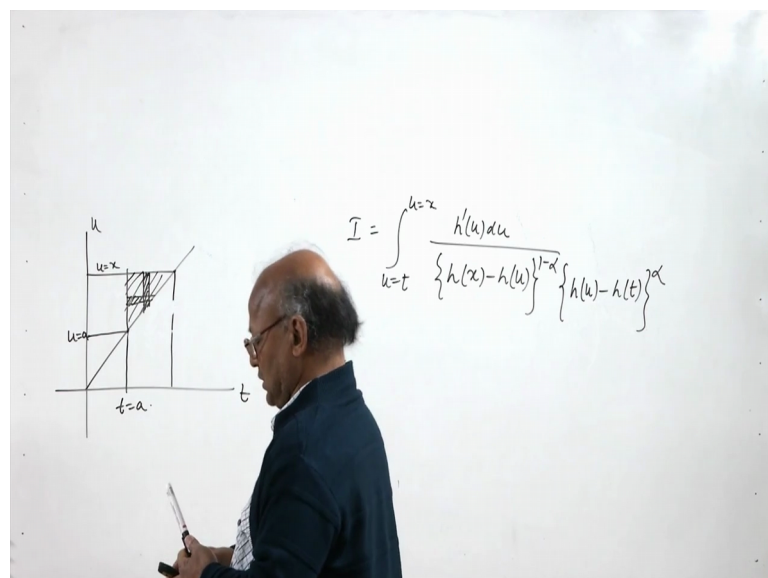 u
u=x
u=a
t
t=a.
I = ∫_{u=t}^{u=x} h'(u)du / {h(x)-h(u)}^{1-α} {h(u)-h(t)}^{α}